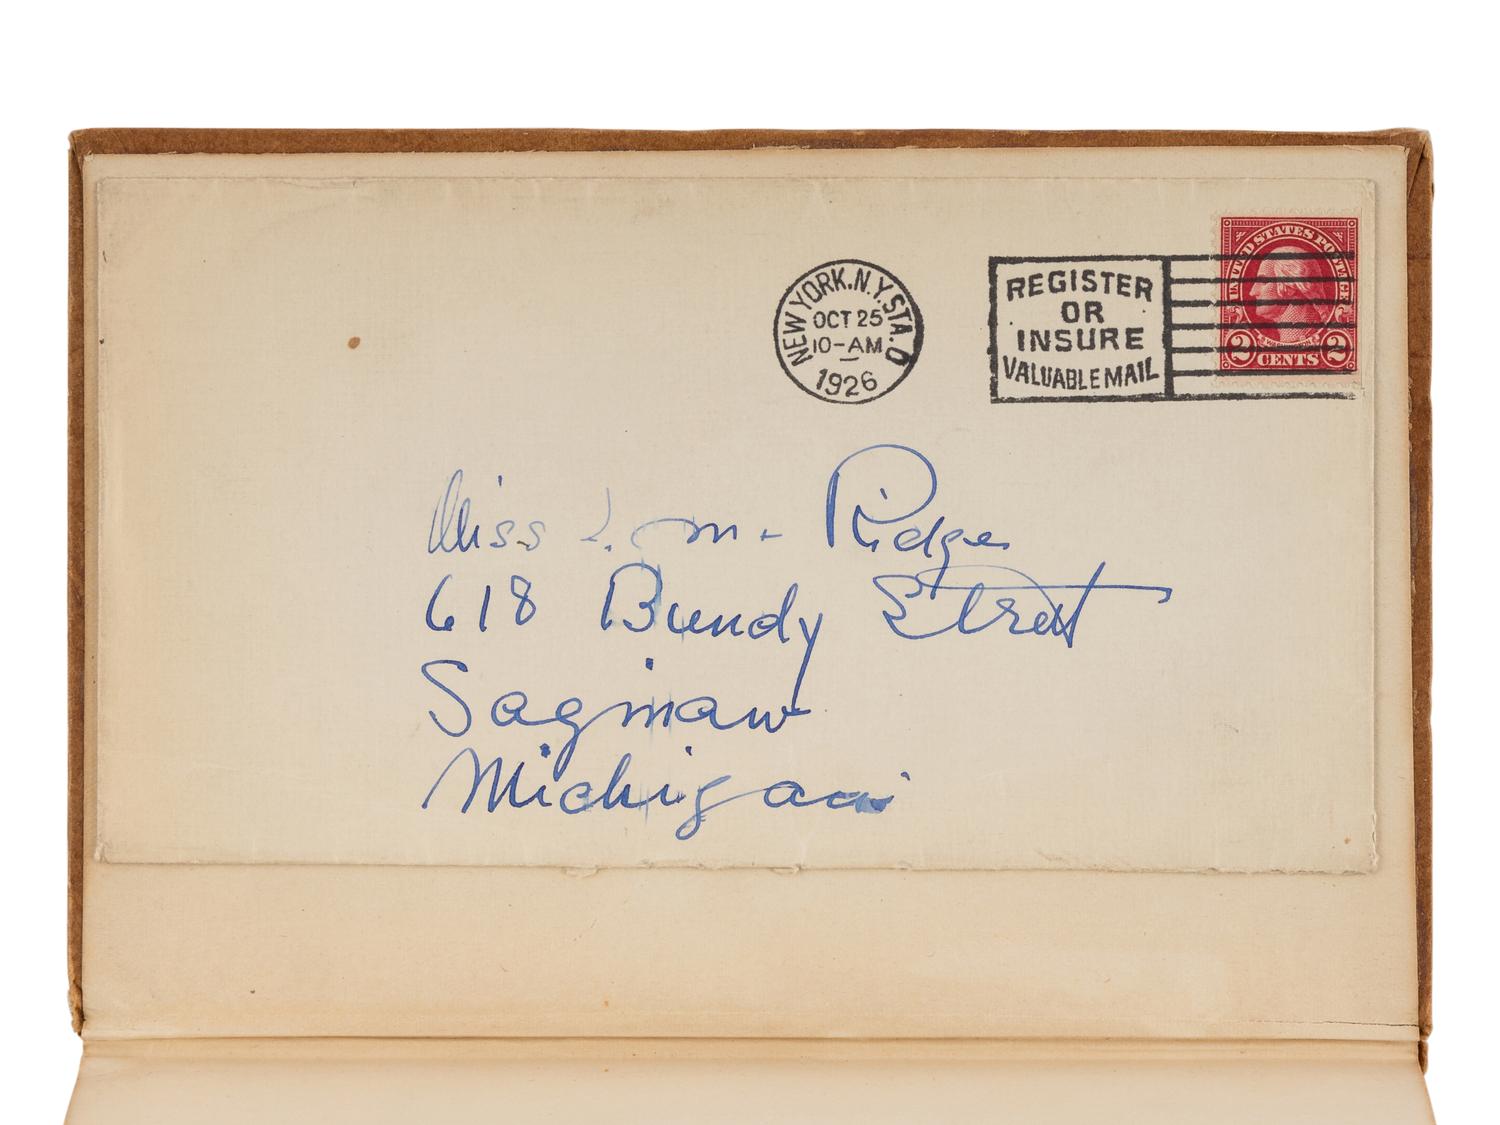 NEW YORK, N.Y. STA. O
OCT 25
10-AM
1926
REGISTER
OR
INSURE
VALUABLE MAIL
UNITED STATES POSTAGE
2 CENTS 2
Miss L. M. Ridge
618 Bundy Street
Saginaw
Michigan